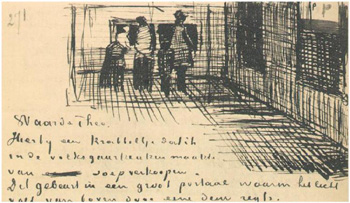 271
Waarde Theo.
Hierbij een krabbeltje dat ik
in de volksgaarkeuken maakte
van soepverkoopen.
Dit gebeurt in een groot portaal waarin het licht
valt van boven door eene deur regts.